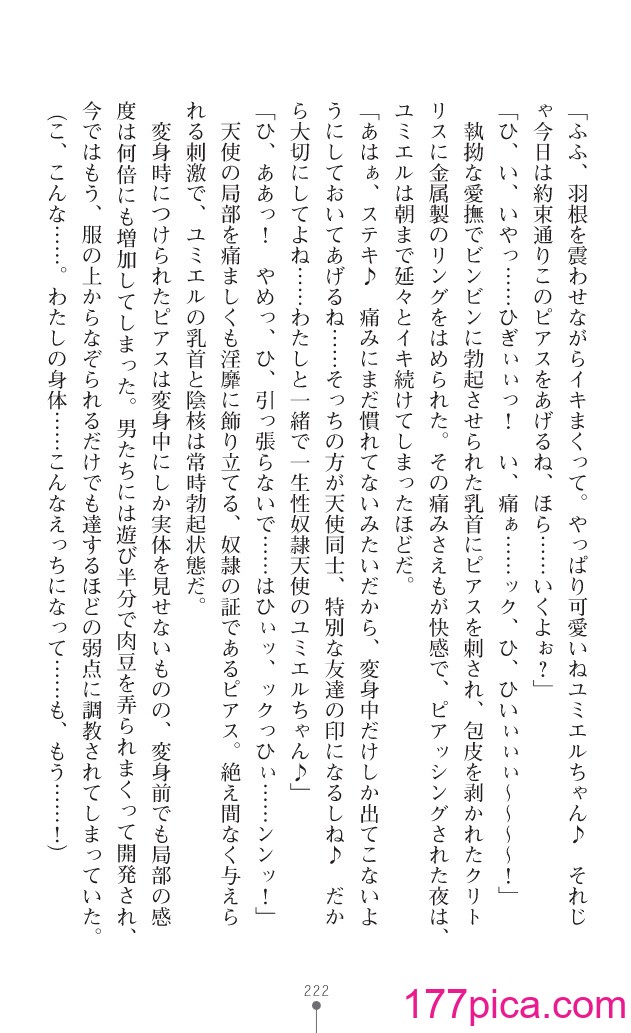 「ふふ、羽根を震わせながらイキまくって。やっぱり可愛いねユミエルちゃん♪　それじ
ゃ今日は約束通りこのピアスをあげるね、ほら……いくよぉ？」
「ひ、い、いやっ……ひぎぃぃっ！　い、痛ぁ……ック、ひ、ひいぃぃぃ～～～～！」
執拗な愛撫でビンビンに勃起させられた乳首にピアスを刺され、包皮を剥かれたクリト
リスに金属製のリングをはめられた。その痛みさえもが快感で、ピアッシングされた夜は、
ユミエルは朝まで延々とイキ続けてしまったほどだ。
「あはぁ、ステキ♪　痛みにまだ慣れてないみたいだから、変身中だけしか出てこないよ
うにしておいてあげるね……そっちの方が天使同士、特別な友達の印になるしね♪　だか
ら大切にしてよね……わたしと一緒で一生性奴隷天使のユミエルちゃん♪」
「ひ、ああっ！　やめっ、ひ、引っ張らないで……はひぃッ、ックっひぃ……ンンッ！」
天使の局部を痛ましくも淫靡に飾り立てる、奴隷の証であるピアス。絶え間なく与えら
れる刺激で、ユミエルの乳首と陰核は常時勃起状態だ。
変身時につけられたピアスは変身中にしか実体を見せないものの、変身前でも局部の感
度は何倍にも増加してしまった。男たちには遊び半分で肉豆を弄られまくって開発され、
今ではもう、服の上からなぞられるだけでも達するほどの弱点に調教されてしまっていた。
（こ、こんな……。わたしの身体……こんなえっちになって……も、もう……！）
222
177pica.com